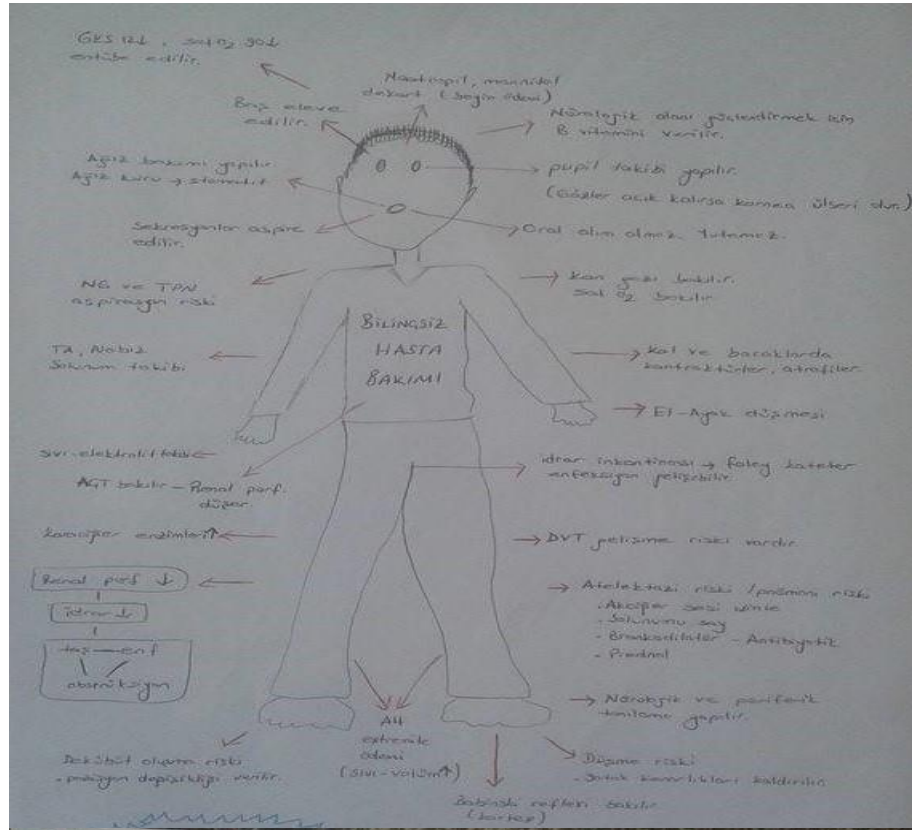 GKS 12↓, sat O2 90↓
entübe edilir.
Nootropil, mannitol
dekort (beyin ödemi)
Baş eleve
edilir.
Nörolojik alanı güçlendirmek için
B vitamini verilir.
Ağız bakımı yapılır.
Ağız kuru → stomatit
pupil takibi yapılır.
(Gözler açık kalırsa kornea ülseri olur.)
Sekresyonlar aspire
edilir.
Oral alım olmaz. Yutamaz.
NG ve TPN
aspirasyon riski
Kan gazı bakılır.
Sat O2 bakılır
BİLİNÇSİZ
HASTA
BAKIMI
TA, Nabız
Solunum takibi
Kol ve bacaklarda
kontraktürler, atrofiler.
El-Ayak düşmesi
sıvı-elektrolit takibi
AGT bakılır - Renal perf.
düşer.
idrar inkontinası → foley kateter
enfeksiyon gelişebilir.
karaciğer enzimleri↑
DVT gelişme riski vardır
Renal perf ↓
idrar ↓
taş enf
obstrüksiyon
Atelektazi riski / pnömoni riski
- Akciğer sesi dinle
- Solunumu say
- Bronkodilatör - Antibiyotik
- Prednol
Nörolojik ve periferik
tanılama yapılır.
Dekübit oluşma riski
- pozisyon değişikliği verilir.
Alt
extremite
ödemi
(sıvı-volüm↑)
Düşme riski
- Yatak kenarlıkları kaldırılır
Babinski refleksi bakılır
(korteks)